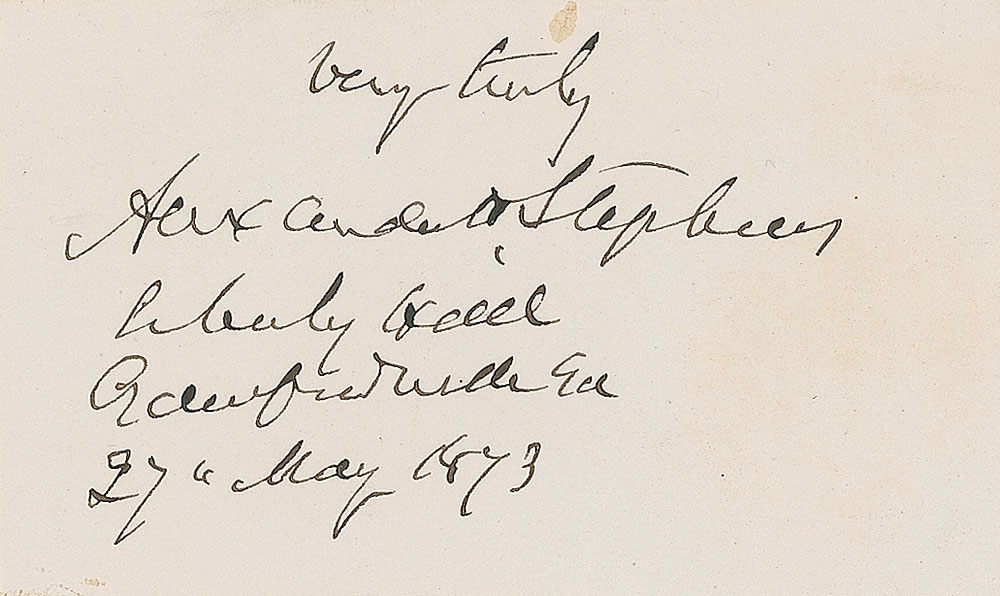 Very truly
Alexander H. Stephens
Liberty Hall
Crawfordville Ga
27" May 1873